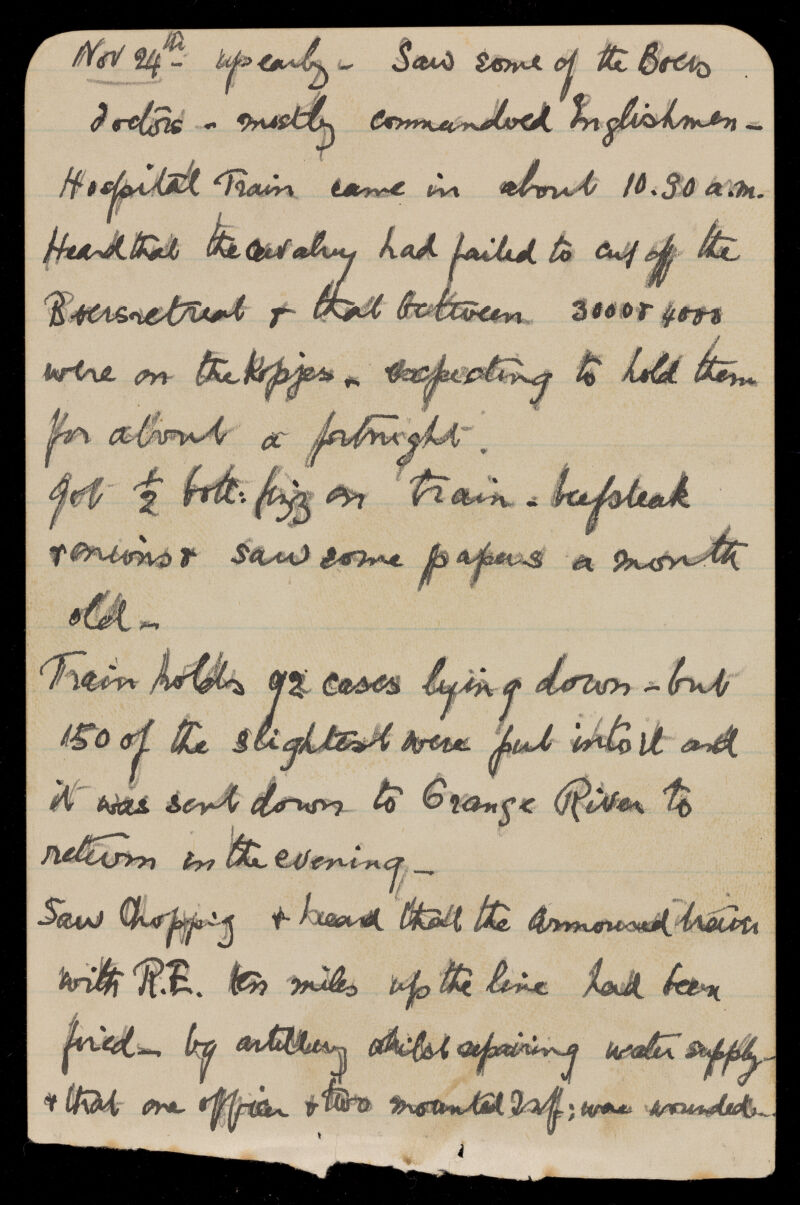 Nov 24th up early - Saw some of the Boers
doctors - mostly commandoed Englishmen -
Hospital Train came in about 10.30 a.m.
Heard that the cavalry had failed to cut off the
Boers retreat & that between 3000 & 4000
were on the Kopjes - expecting to hold them
for about a fortnight.
Got ½ bott: fizz on train - beefsteak
& onions & saw some papers a month
old -
Train holds 92 cases lying down - but
150 of the slightest were put into it and
it was sent down to Orange River to
return in the evening -
Saw Chopping & heard that the armoured train
with R.E. ten miles up the line had been
fired - by artillery whilst repairing water supply -
& that one officer & two mounted Inf; was wounded -